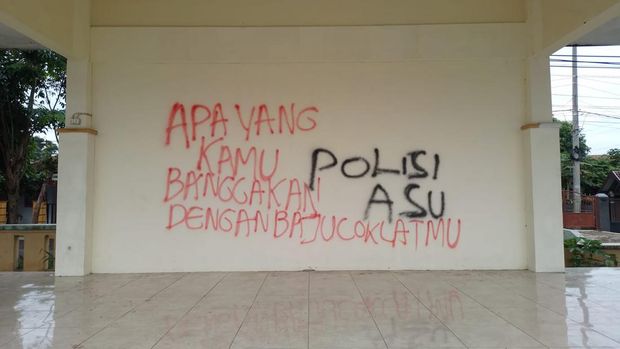 APA YANG
KAMU
BANGGAKAN
DENGAN BAJU COKLATMU
POLISI
ASU